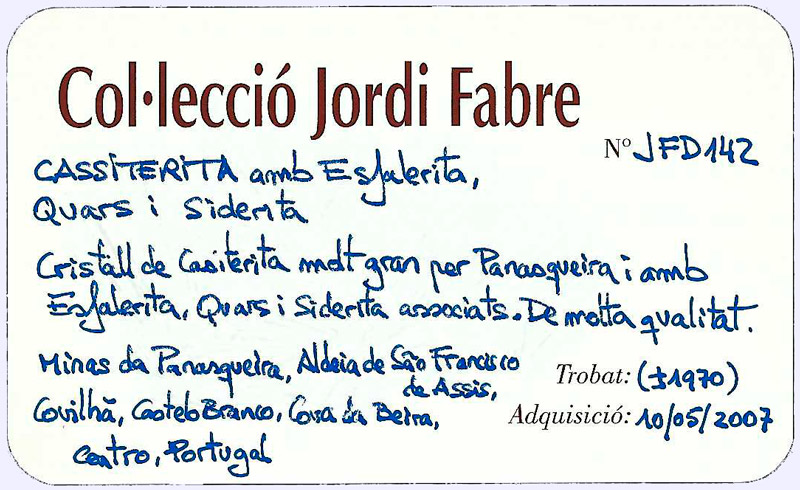 Col·lecció Jordi Fabre
Nº JFD142
CASSITERITA amb Esfalerita,
Quars i Siderita
Cristall de Casiterita molt gran per Panasqueira i amb
Esfalerita, Quars i Siderita associats. De molta qualitat.
Minas da Panasqueira, Aldeia de São Francisco
de Assis,
Covilhã, Castelo Branco, Cova da Beira,
Centro, Portugal
Trobat: (±1970)
Adquisició: 10/05/2007